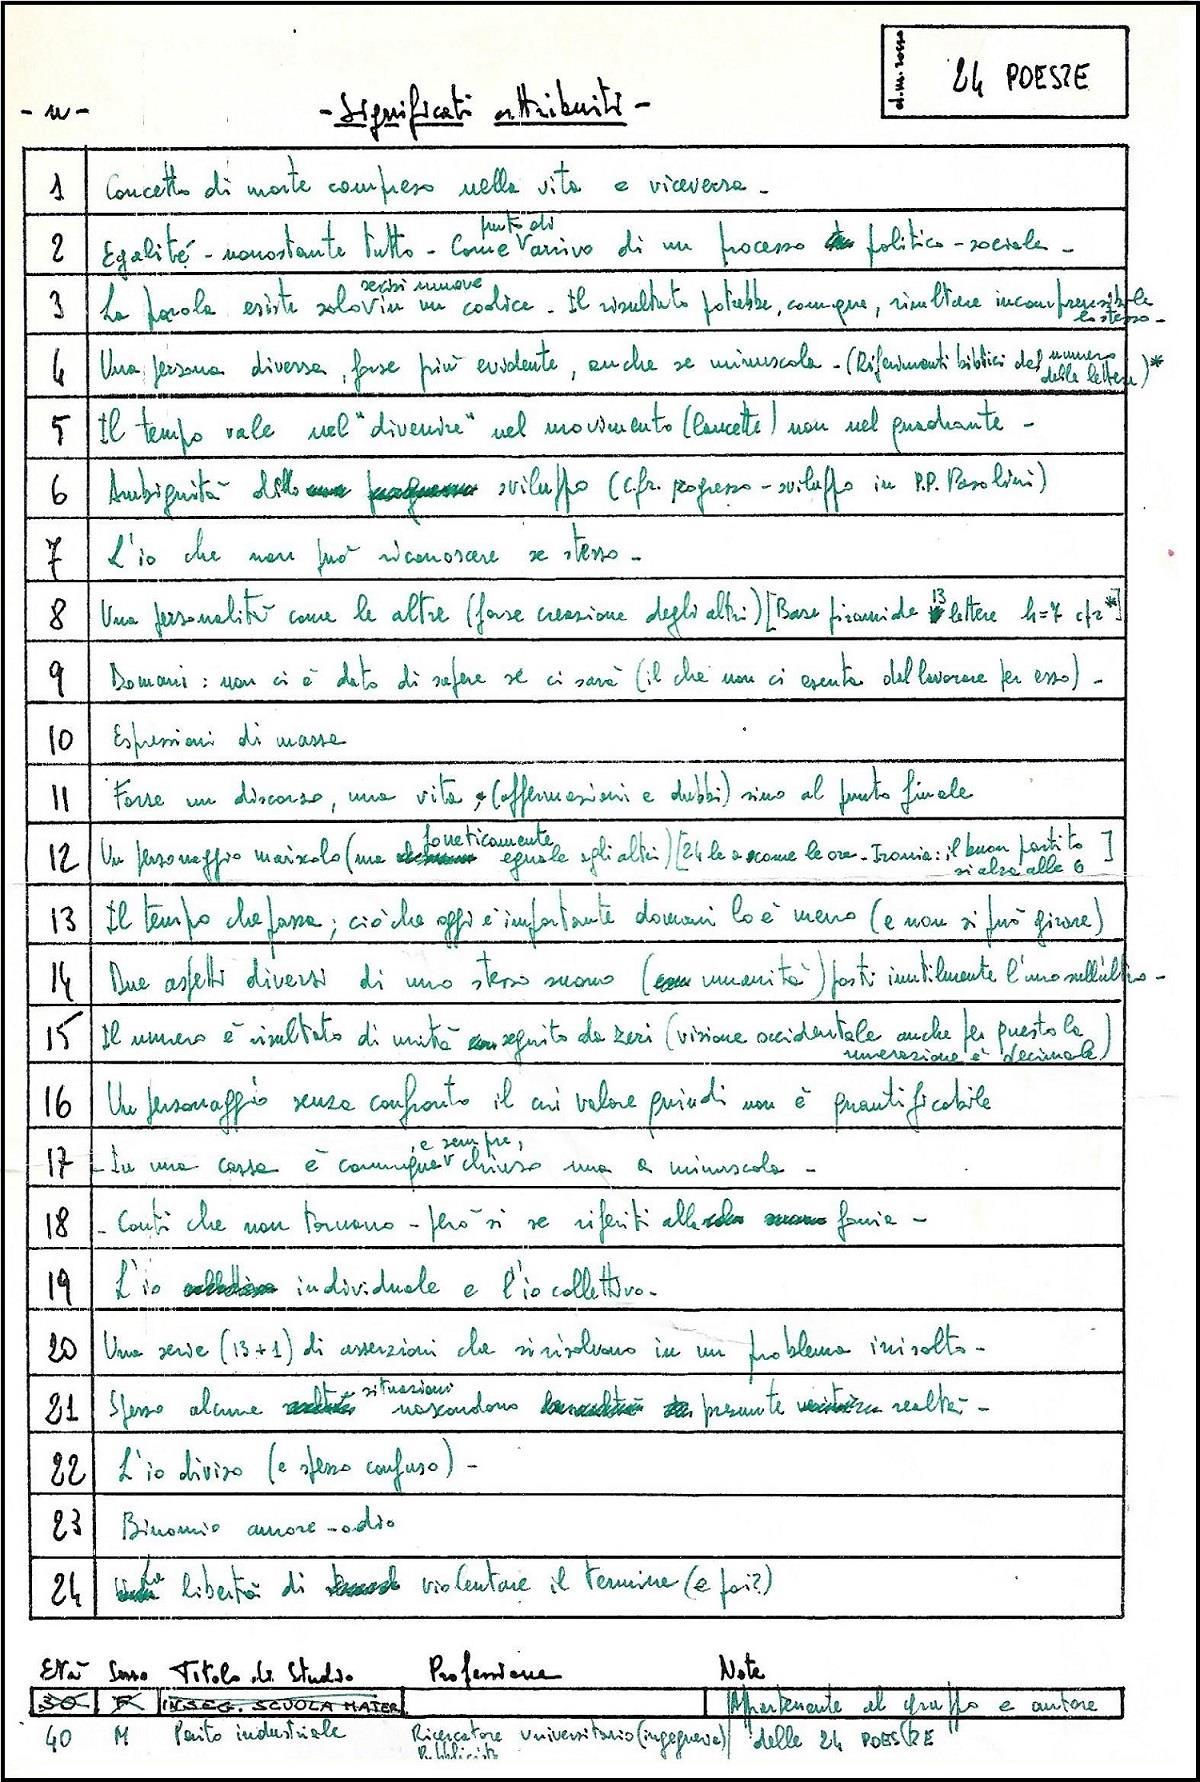 d.m. rosso
24 POESIE
- n -
- Significati attribuiti -
1 Concetto di morte compreso nella vita e viceversa -
punto di
2 Egalité - nonostante tutto - Come arrivo di un processo politico - sociale -
3 La parola esiste solo in un codice - Il risultato potrebbe, comunque, risultare incomprensibile
lo stesso -
4 Una persona diversa, forse più evidente, anche se minuscola - (Riferimenti biblici del numero
delle lettere) *
5 Il tempo vale nel "divenire" nel movimento (lancette) non nel quadrante -
6 Ambiguità dello sviluppo (cfr. progresso - sviluppo in P.P. Pasolini)
7 L'io che non può riconoscere se stesso -
8 Una personalità come le altre (forse creazione degli altri) [Base piramide 13 lettere h=7 cfr *]
9 Domani : non ci è dato di sapere se ci sarà (il che non ci esenta dal lavorare per esso) -
10 Espressioni di massa
11 Forse un discorso, una vita, (affermazioni e dubbi) sino al punto finale
foneticamente
12 Un personaggio (ma eguale agli altri) [24 le a come le ore - Ironia : il buon partito ]
si alza alle 6
13 Il tempo che passa ; ciò che oggi è importante domani lo è meno (e non si può girare)
14 Due aspetti diversi di uno stesso suono ( umanità ) posti inutilmente l'uno sull'altro -
15 Il numero è risultato di unità seguito da zeri (visione occidentale anche per questo la
numerazione è decimale)
16 Un personaggio senza confronto il cui valore quindi non è quantificabile
, e sempre,
17 - In una cassa è comunque chiusa una a minuscola -
18 - Conti che non tornano - però sì se riferiti alla -
19 L'io individuale e l'io collettivo -
20 Una serie (13+1) di asserzioni che si risolvono in un problema irrisolto -
situazioni
21 Spesso alcune nascondono presunte realtà -
22 L'io diviso (e spesso confuso) -
23 Binomio amore - odio
24 La libertà di violentare il termine (e poi?)
Età Sesso Titolo di Studio Professione Note
30 F INSEG. SCUOLA MATER. Appartenente al gruppo e autore
40 M Perito industriale Ricercatore universitario (ingegneria) delle 24 POESIE
Pubblicista